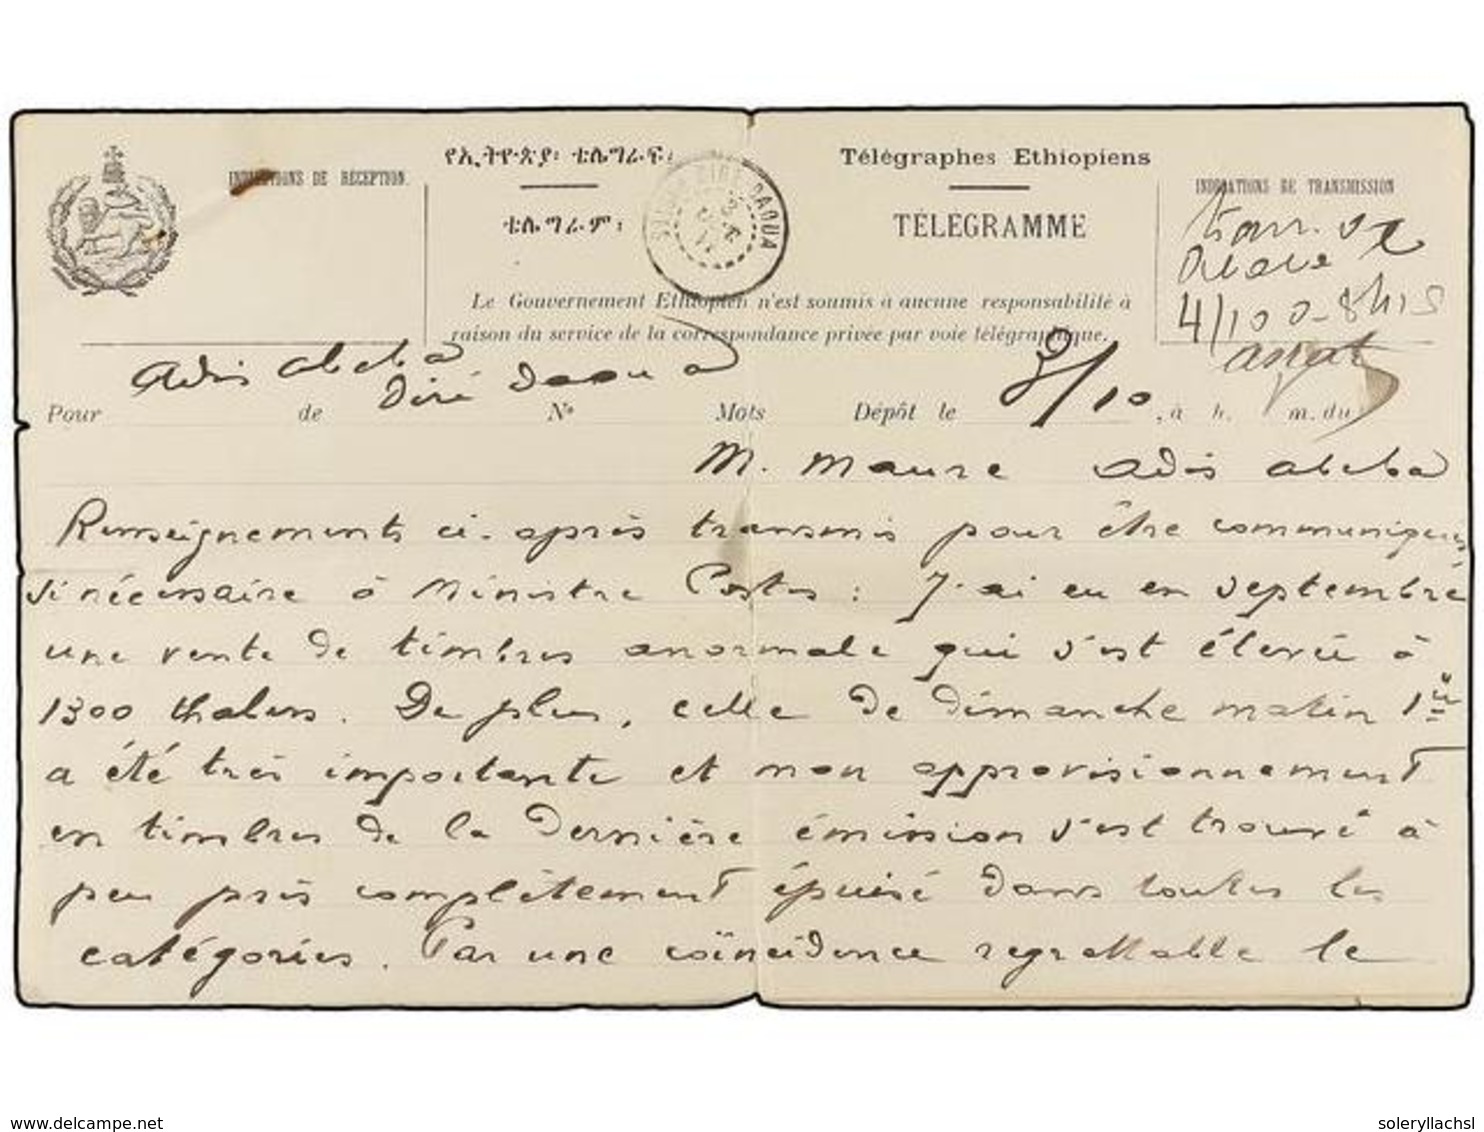 የኢትዮጵያ፡ ቴሌግራፍ፡
Télégraphes Ethiopiens
INDICATIONS DE RÉCEPTION.
INDICATIONS DE TRANSMISSION
ቴሌግራም፡
TÉLÉGRAMME
DIRÉ DAOUA
Le Gouvernement Ethiopien n'est soumis a aucune responsabilité à
raison du service de la correspondance privée par voie télégraphique.
4/10 0-8h15
Pour Adis abeba de Diré Daoua No Mots Dépôt le 3/10, à h. m. du
M. Maure Adis abeba
Renseignements ci-après transmis pour être communiqués
si nécessaire à Ministre Postes : J'ai eu en septembre
une vente de timbres anormale qui s'est élevée à
1300 thalers. De plus, celle de dimanche matin 1er
a été très importante et mon approvisionnement
en timbres de la dernière émission s'est trouvé à
peu près complètement épuisé dans toutes les
catégories. Par une coïncidence regrettable le
delcampe.net
soleryllachsl